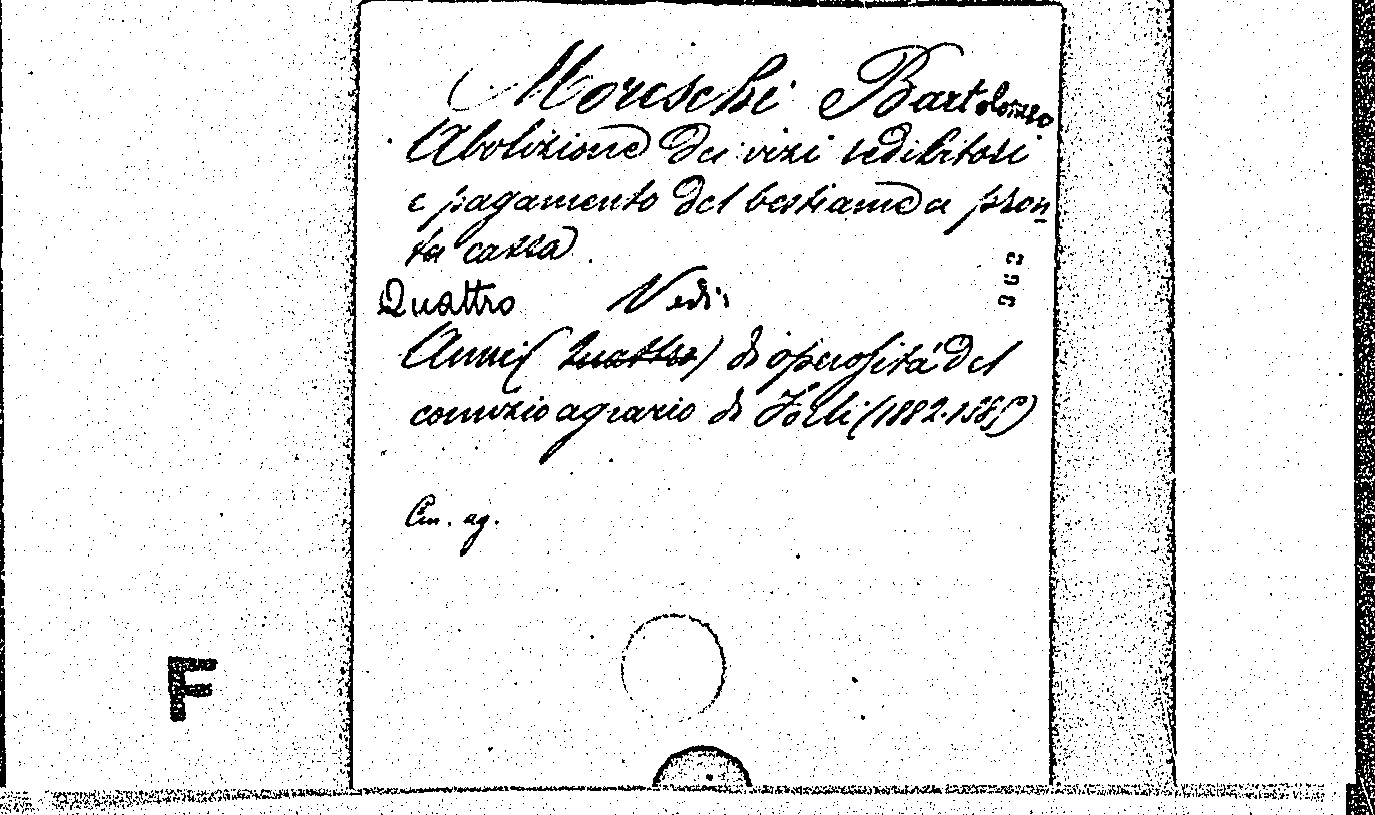 Moreschi Bartolomeo
Abolizione dei vizi redibitori
e pagamento del bestiame a pron-
ta cassa.
362
Quattro Vedi:
Anni (Quattro) di operosità del
comizio agrario di Forlì (1882-1885)
Cm. ag.
F